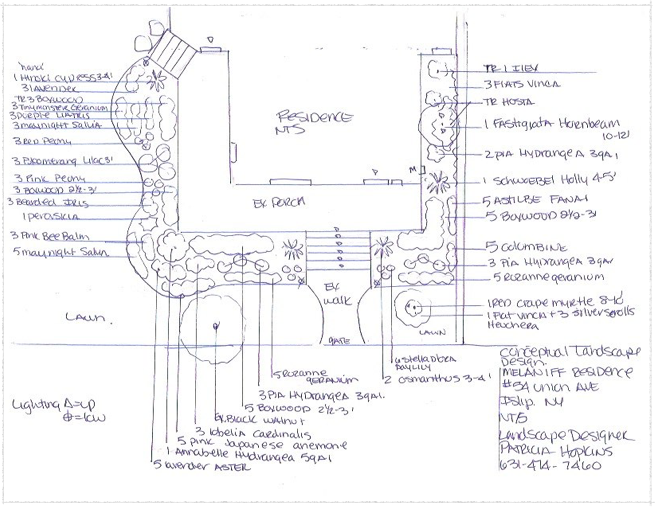 "hana"
1 Hinoki Cypress 3-4'
3 Lavender
TR 3 Boxwood
3 Geranium
3 Purple Liatris
3 Maynight Salvia
3 Red Peony
3 Bloomerang Lilac 3'
3 Pink Peony
3 Boxwood 2½-3'
3 Bearded Iris
3 Pink Bee Balm
5 Maynight Salvia
Lawn
Residence
NTS
Ex Porch
Ex
walk
gate
M
TR 1 ILEX
3 Flats Vinca
TR Hosta
1 Fastigiata Hornbeam
10-12'
2 Pia Hydrangea 3gal
1 Schwoebel Holly 4-5'
5 Astilbe Fanal
5 Boxwood 2½-3'
5 Columbine
3 Pia Hydrangea 3gal
5 Rozanne geranium
1 Red Crape myrtle 8-10'
1 Flat Vinca + 3 Silver scrolls
Heuchera
Lawn
6 Stella D'oro
Daylily
2 Osmanthus 3-4'
5 Rozanne
geranium
3 Pia Hydrangea 3gal.
5 Boxwood 2½-3'
Ex. Black Walnut
3 lobelia Cardinalis
5 Pink Japanese anemone
1 Annabelle Hydrangea 5gal
5 lavender ASTER
Lighting Δ=up
Conceptual Landscape
Design
Melaniff Residence
#54 Union Ave
Islip. NY
NTS
Landscape Designer
Patricia Hopkins
631-474-7460